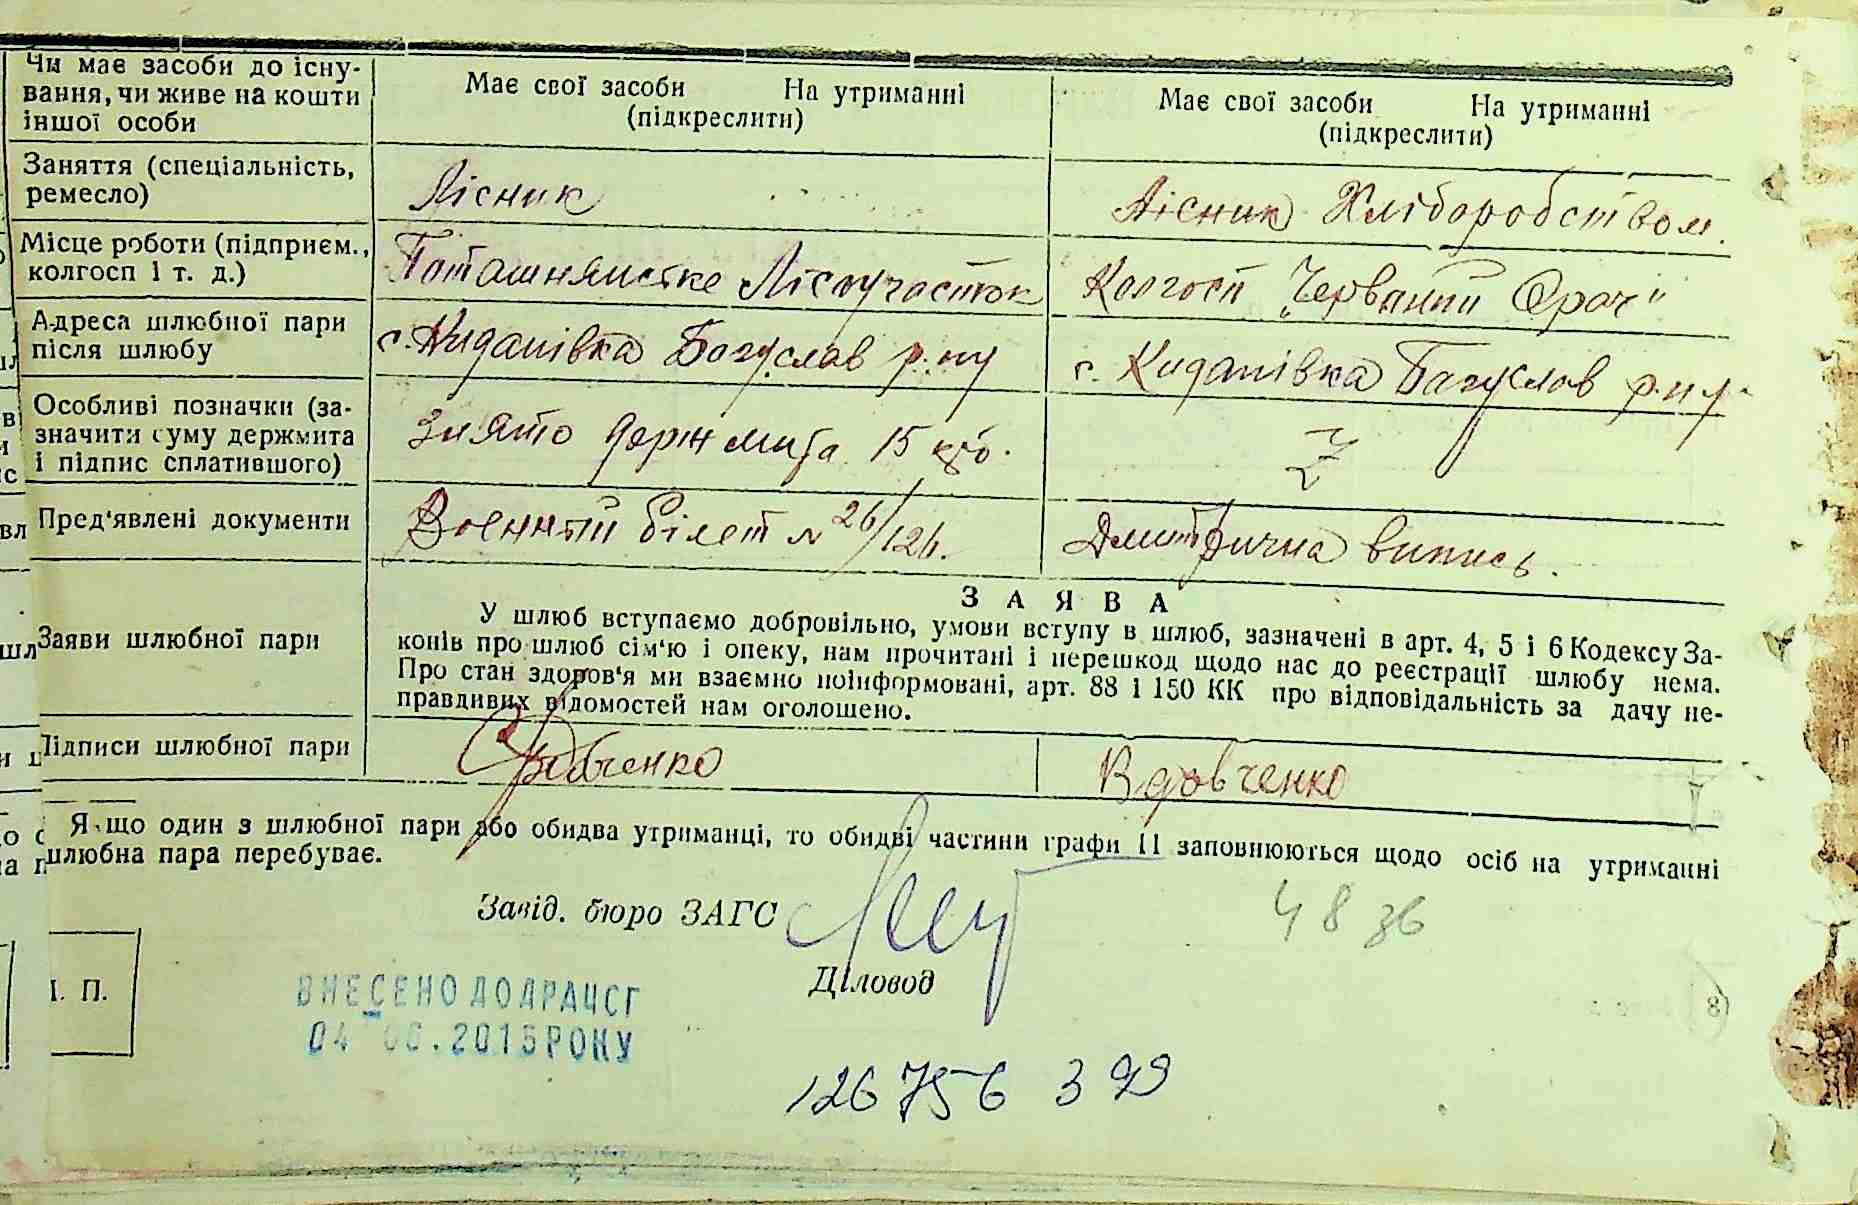 Чи має засоби до існу-
вання, чи живе на кошти
іншої особи
Має свої засоби На утриманні
(підкреслити)
Має свої засоби На утриманні
(підкреслити)
Заняття (спеціальність,
ремесло)
Лісник
Лісник Хліборобством.
Місце роботи (підприєм.,
колгосп і т. д.)
Поташнянске Лісоучасток
Колгосп „Червоний Орач"
Адреса шлюбної пари
після шлюбу
с. Киданівка Богуслав р-ну
с. Киданівка Багуслав р-ну
Особливі позначки (за-
значити суму держмита
і підпис сплатившого)
Знято держмита 15 крб.
Z
Пред'явлені документи
Воєнний білет № 26/126.
Дмитрична випись.
Заяви шлюбної пари
ЗАЯВА
У шлюб вступаємо добровільно, умови вступу в шлюб, зазначені в арт. 4, 5 і 6 Кодексу За-
конів про шлюб сім'ю і опеку, нам прочитані і перешкод щодо нас до реєстрації шлюбу нема.
Про стан здоров'я ми взаємно поінформовані, арт. 88 і 150 КК про відповідальність за дачу не-
правдивих відомостей нам оголошено.
Підписи шлюбної пари
Вдовченко
Я що один з шлюбної пари або обидва утриманці, то обидві частини графи 11 заповнюються щодо осіб на утриманні
шлюбна пара перебуває.
Завід. бюро ЗАГС
48 зв
Діловод
П.
ВНЕСЕНО ДО ДРАЦСГ
04 06.2015 РОКУ
126756 399